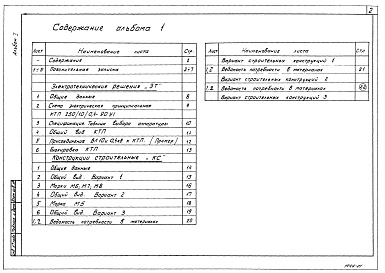 2
Альбом 1
Содержание альбома 1
Лист Наименование листа Стр.
- Содержание 2
1÷8 Пояснительная записка 3-7
Электротехнические решения "ЭТ"
1 Общие данные 8
2 Схема электрическая принципиальная 9
КТП 250/10/0,4-90У1
3 Спецификация. Таблица выбора аппаратуры 10
4 Общий вид КТП 11
5 Присоединение ВЛ 10 и 0,4 кВ к КТП. (Пример) 12
6 Блокировка КТП 13
Конструкции строительные "КС"
1 Общие данные 14
2 Общий вид. Вариант 1 15
3 Марки М6, М7, М8 16
4 Общий вид. Вариант 2 17
5 Марка М5 18
6 Общий вид. Вариант 3 19
1.2 Ведомость потребности в материалах 20
Лист Наименование листа Стр.
Вариант строительных конструкций 1
1.2 Ведомость потребности в материалах 21
Вариант строительных конструкций 2
1.2 Ведомость потребности в материалах 22
Вариант строительных конструкций 3